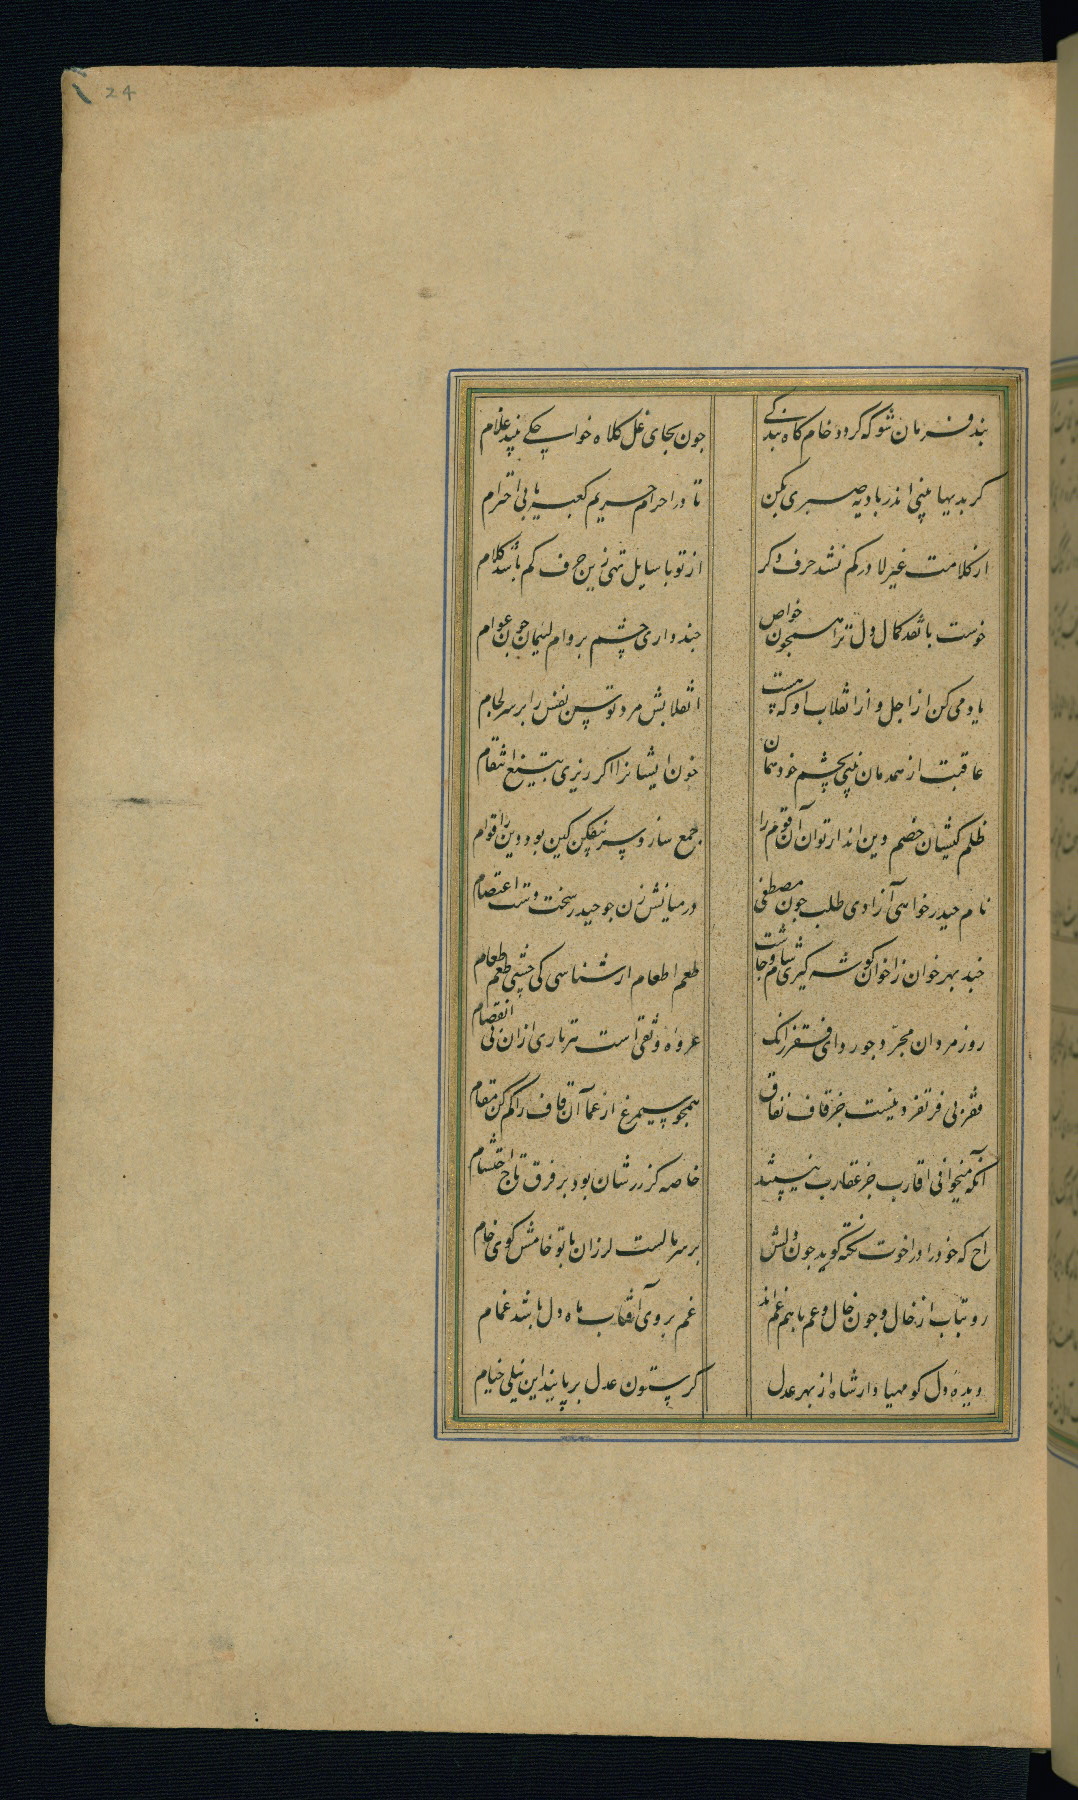 24
بنده فرمان شو که گردد خام کاه بندگی چون بجای غل کلاه خواجگی بیند غلام
کر بدیها بینی اندر بادیه صبری بکن تا در احرام حریم کعبه یابی احترام
از کلامت غیر لا در کم نشد حرف دکر از تو با سایل تهی زین حرف کم باشد کلام
خوست باشد کمال دل ترا همچون خواص چند داری چشم بر وام لئیمان چون عوام
یاد می کن از اجل و از انقلاب او که هست انقلابش مرد توسن نفس را بر سر لجام
عاقبت از همدمان بینی بچشم خود همان خون ایشانرا اکر ریزی بتیغ انتقام
ظلم کیشان خصم دین اند ار توان آن قوم را جمع ساز و سر بیفکن کین بود دین را قوام
نام حیدر خواهی آزادی طلب چون مصطفی در میانش زن چو حیدر سخت دست اعتصام
چند بهر خوان ز اخوان کوشه گیری شام و چاشت طعم اطعام ار شناسی کی چشی طعم طعام
روز مردان مجرد جو ردای فقر زانک عروه وثقی است هر تاری ازان بی انفصام
فقر بی فر تفرد نیست جز قاف نفاق همچو سیمرغ از عما آن قاف را کم کن مقام
آنکه میخوانی اقارب جز عقارب نیستند خاصه کز زرشان بود بر فرق تاج احتشام
اخ که خود را در اخوت نکته کوید چون دلش بر سر مالست لرزان با تو خامش کوی خام
رو بتاب از خال و چون خال و عم با هم غم اند غم بروی آفتاب ماه دل باشد غمام
دیده دل کو مهیا دار شاه از بهر عدل کر ستون عدل بر پایند این نیلی خیام